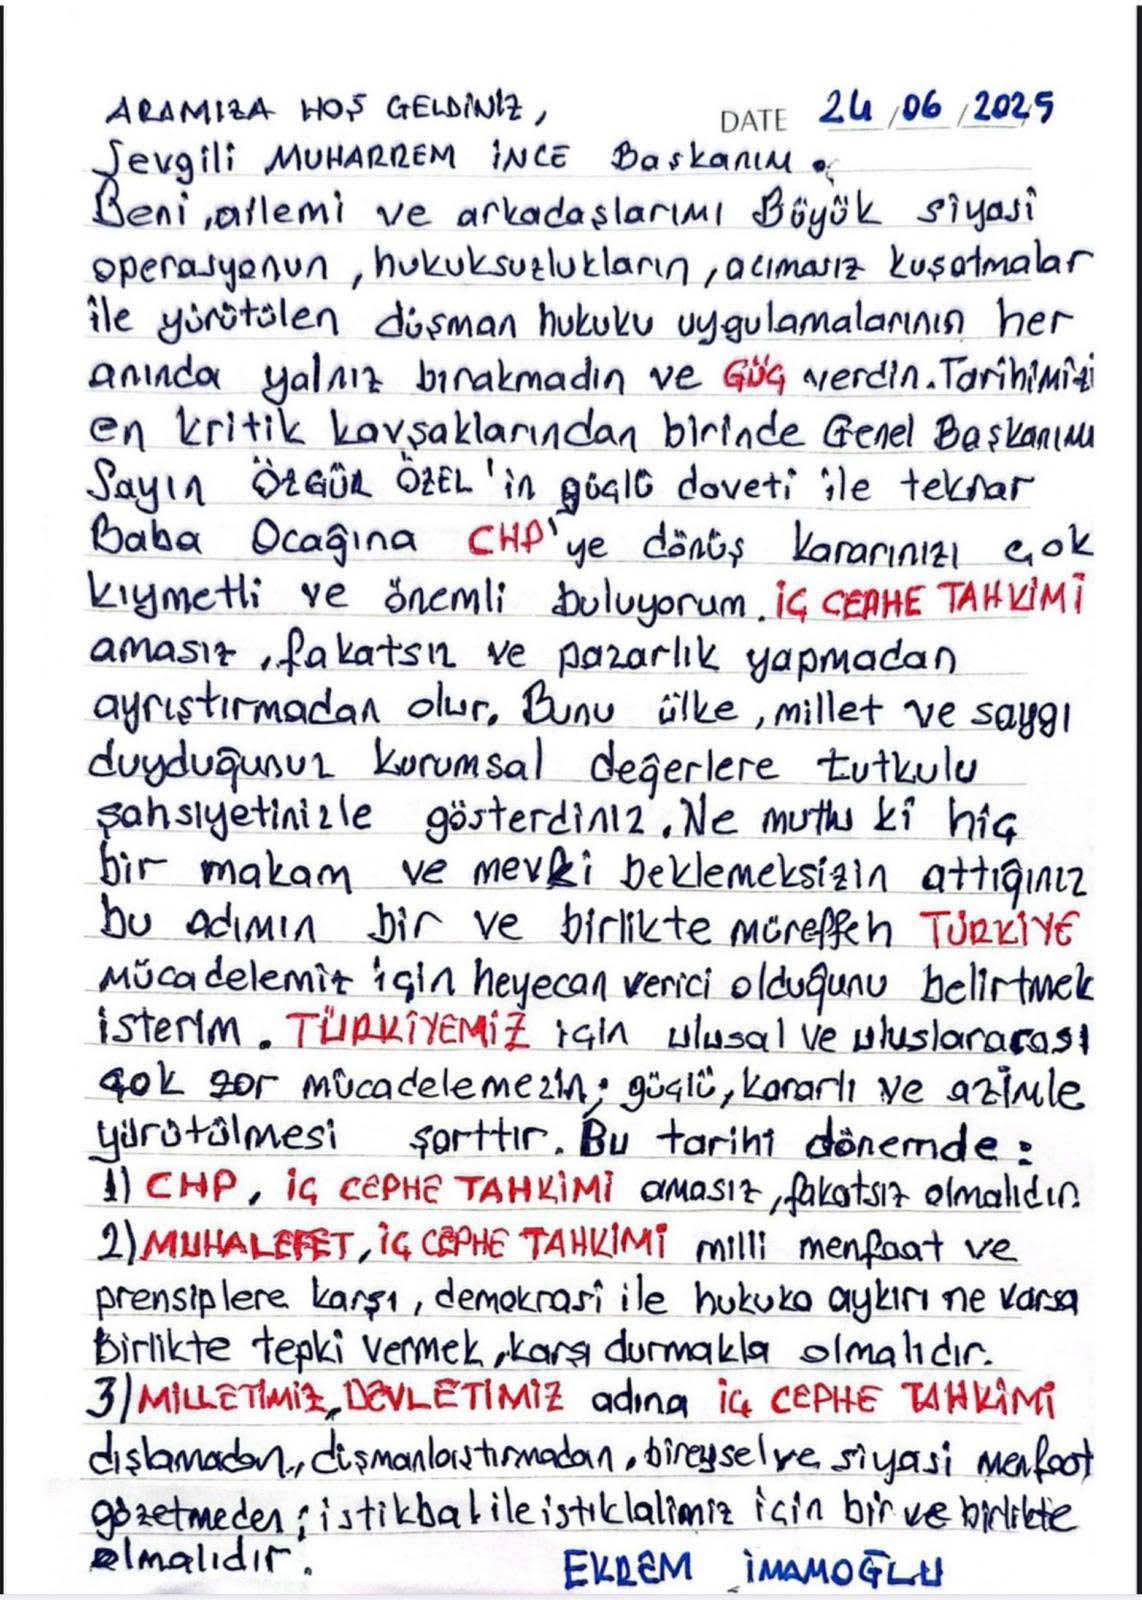 ARAMIZA HOŞ GELDİNİZ, DATE 24/06/2025
Sevgili MUHARREM İNCE Başkanım.
Beni, ailemi ve arkadaşlarımı Büyük siyasi
operasyonun, hukuksuzlukların, acımasız kuşatmalar
ile yürütülen düşman hukuku uygulamalarının her
anında yalnız bırakmadın ve GÜÇ verdin. Tarihimizi
en kritik kavşaklarından birinde Genel Başkanımı
Sayın ÖZGÜR ÖZEL'in güçlü daveti ile tekrar
Baba Ocağına CHP'ye dönüş kararınızı çok
kıymetli ve önemli buluyorum. İÇ CEPHE TAHKİMİ
amasız, fakatsız ve pazarlık yapmadan
ayrıştırmadan olur. Bunu ülke, millet ve saygı
duyduğunuz kurumsal değerlere tutkulu
şahsiyetinizle gösterdiniz. Ne mutlu ki hiç
bir makam ve mevki beklemeksizin attığınız
bu adımın bir ve birlikte müreffeh TÜRKİYE
mücadelemiz için heyecan verici olduğunu belirtmek
isterim. TÜRKİYEMİZ için ulusal ve uluslararası
çok zor mücadelemezin; güçlü, kararlı ve azimle
yürütülmesi şarttır. Bu tarihi dönemde:
1) CHP, İÇ CEPHE TAHKİMİ amasız, fakatsız olmalıdır.
2) MUHALEFET, İÇ CEPHE TAHKİMİ milli menfaat ve
prensiplere karşı, demokrasi ile hukuka aykırı ne varsa
Birlikte tepki vermek, karşı durmakla olmalıdır.
3) MİLLETİMİZ, DEVLETİMİZ adına İÇ CEPHE TAHKİMİ
dışlamadan, düşmanlaştırmadan, bireysel ve siyasi menfaat
gözetmeden; istikbal ile istiklalimiz için bir ve birlikte
olmalıdır.
EKREM İMAMOĞLU